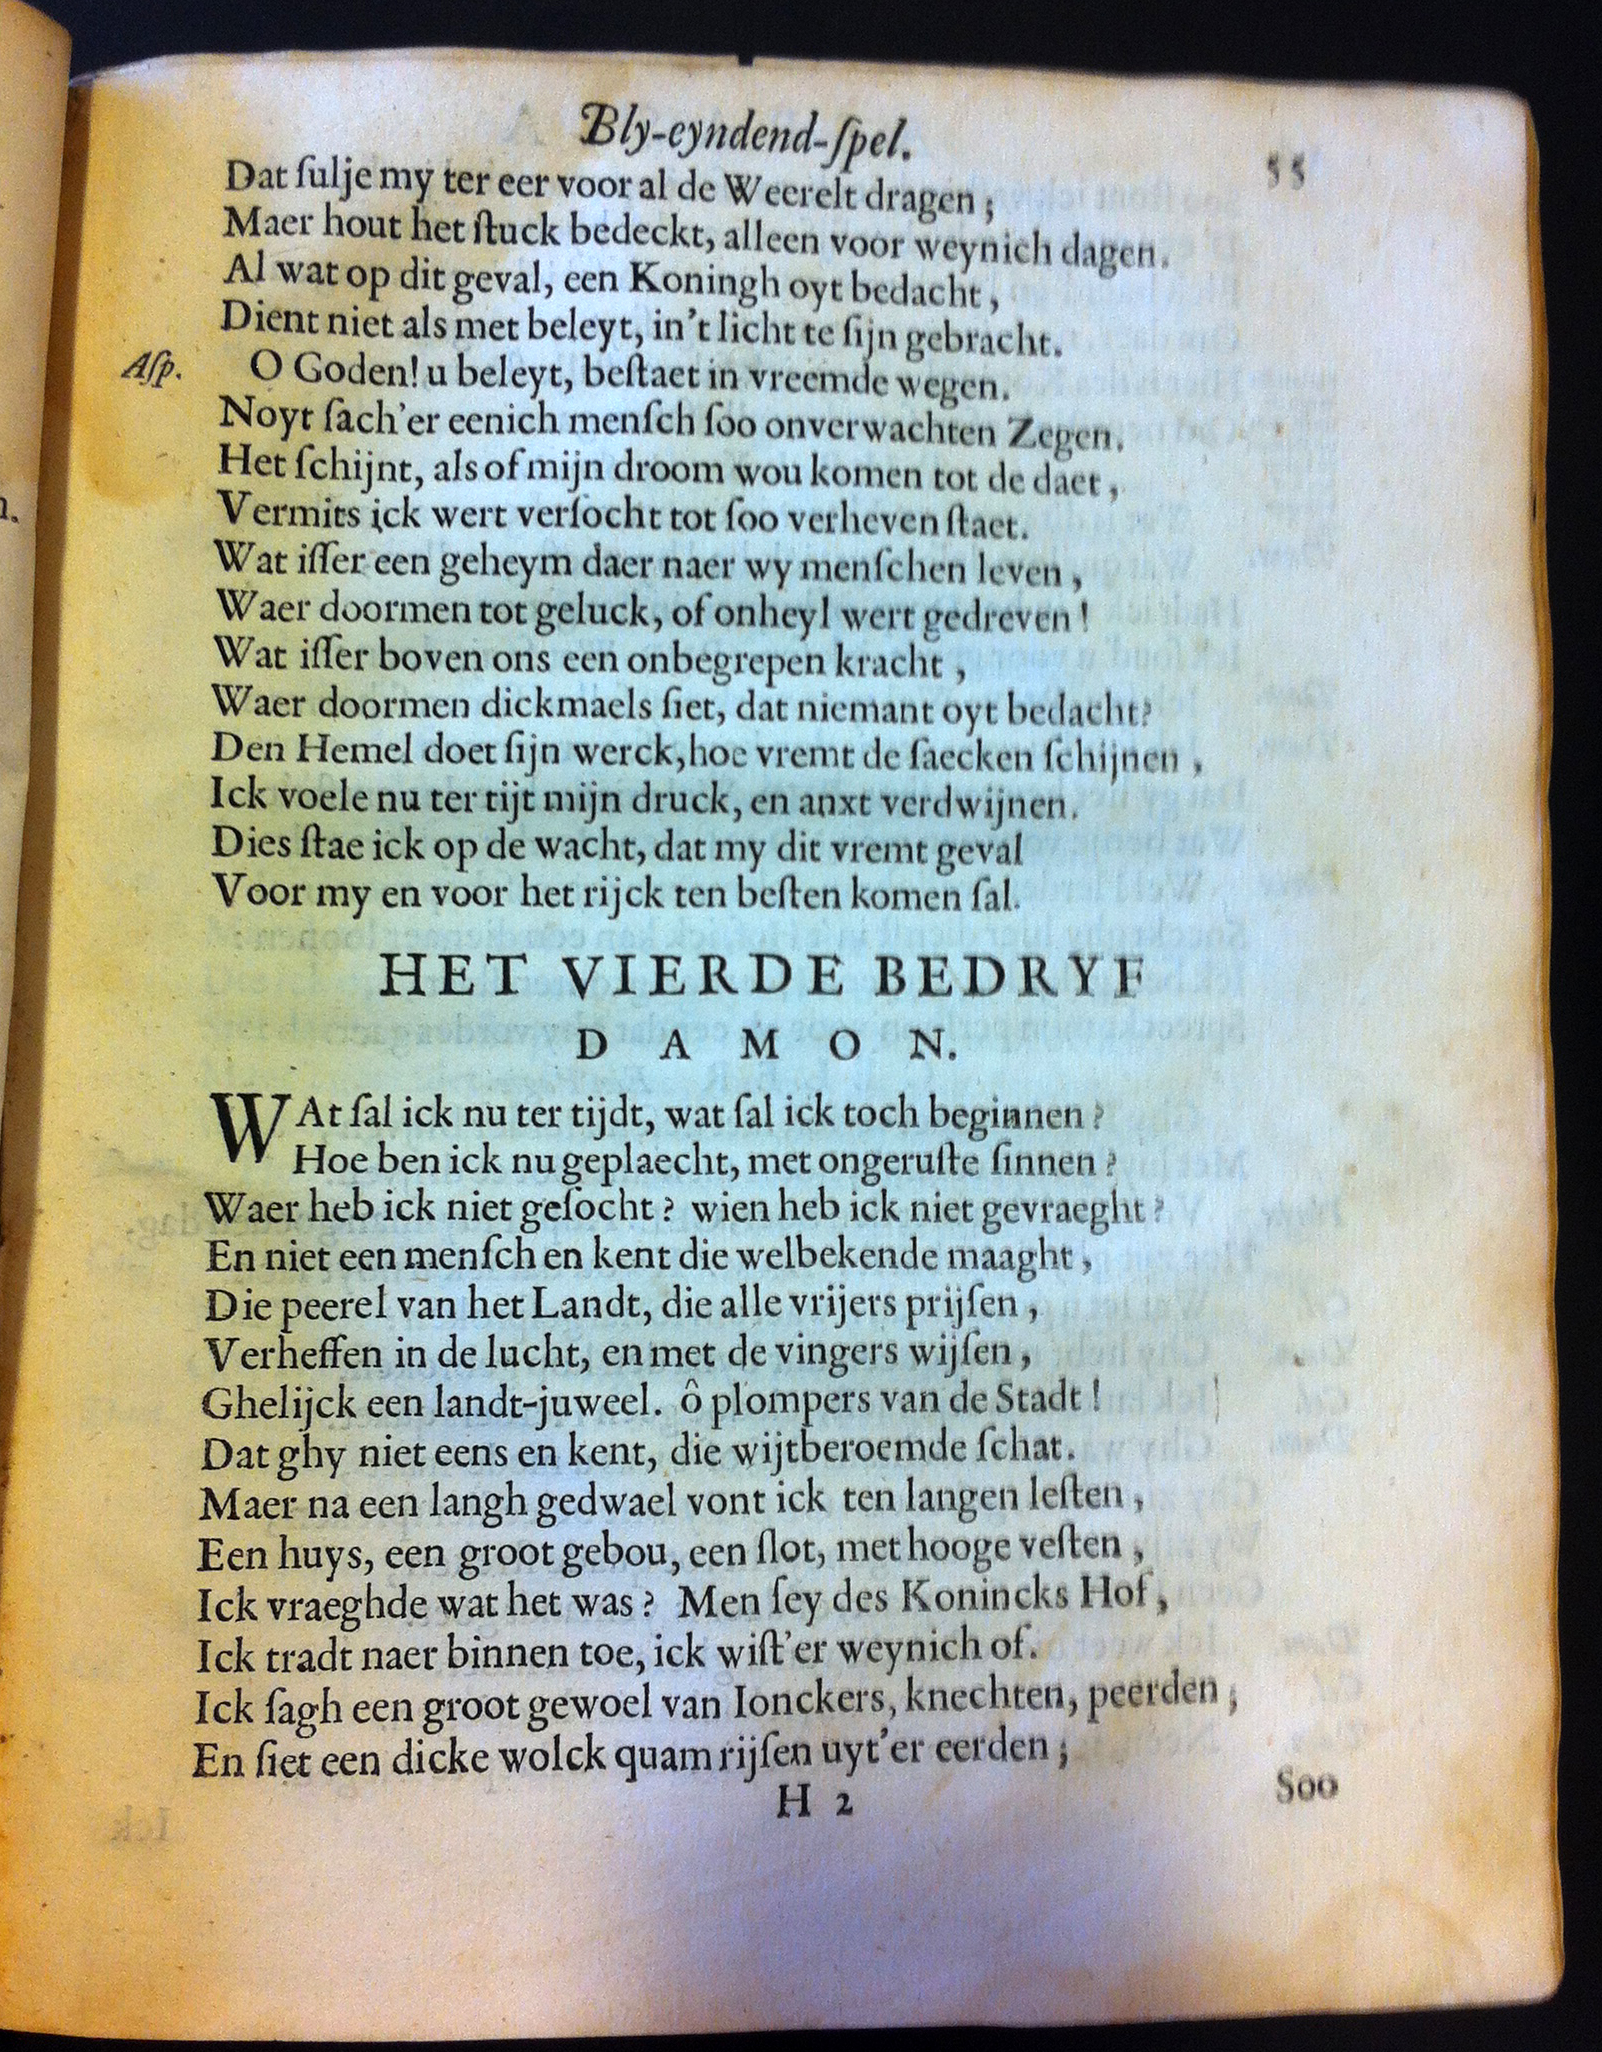 Bly-eyndend-ſpel.
55
Dat ſulje my ter eer voor al de Weerelt dragen;
Maer hout het ſtuck bedeckt, alleen voor weynich dagen.
Al wat op dit geval, een Koningh oyt bedacht,
Dient niet als met beleyt, in't licht te ſijn gebracht.
Aſp. O Goden! u beleyt, beſtaet in vreemde wegen.
Noyt ſach'er eenich menſch ſoo onverwachten Zegen.
Het ſchijnt, als of mijn droom wou komen tot de daet,
Vermits ick wert verſocht tot ſoo verheven ſtaet.
Wat iſſer een geheym daer naer wy menſchen leven,
Waer doormen tot geluck, of onheyl wert gedreven!
Wat iſſer boven ons een onbegrepen kracht,
Waer doormen dickmaels ſiet, dat niemant oyt bedacht?
Den Hemel doet ſijn werck, hoe vremt de ſaecken ſchijnen,
Ick voele nu ter tijt mijn druck, en anxt verdwijnen.
Dies ſtae ick op de wacht, dat my dit vremt geval
Voor my en voor het rijck ten beſten komen ſal.
HET VIERDE BEDRYF
DAMON.
WAt ſal ick nu ter tijdt, wat ſal ick toch beginnen?
Hoe ben ick nu geplaecht, met ongeruſte ſinnen?
Waer heb ick niet geſocht? wien heb ick niet gevraeght?
En niet een menſch en kent die welbekende maaght,
Die peerel van het Landt, die alle vrijers prijſen,
Verheffen in de lucht, en met de vingers wijſen,
Ghelijck een landt-juweel. ô plompers van de Stadt!
Dat ghy niet eens en kent, die wijtberoemde ſchat.
Maer na een langh gedwael vont ick ten langen leſten,
Een huys, een groot gebou, een ſlot, met hooge veſten,
Ick vraeghde wat het was? Men ſey des Konincks Hof,
Ick tradt naer binnen toe, ick wiſt'er weynich of.
Ick ſagh een groot gewoel van Ionckers, knechten, peerden;
En ſiet een dicke wolck quam rijſen uyt'er eerden;
H 2
Soo